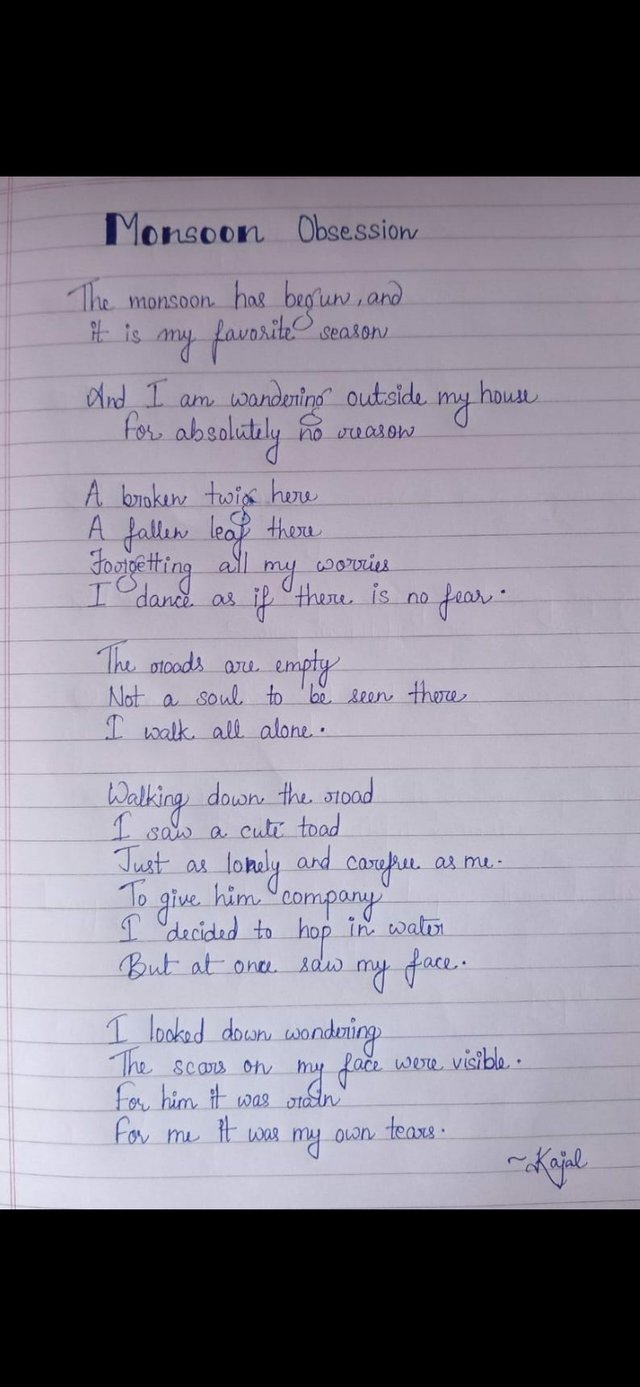 Monsoon Obsession
The monsoon has begun, and
it is my favorite season
And I am wandering outside my house
for absolutely no reason
A broken twig here
A fallen leaf there
Forgetting all my worries
I dance as if there is no fear.
The roads are empty
Not a soul to be seen there
I walk all alone.
Walking down the road
I saw a cute toad
Just as lonely and carefree as me.
To give him company
I decided to hop in water
But at once saw my face.
I looked down wondering
The scars on my face were visible.
For him it was rain
For me it was my own tears.
~Kajal